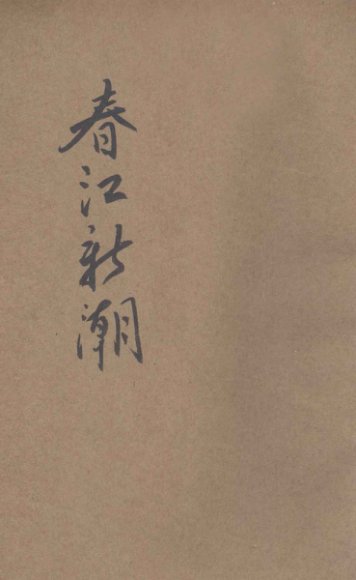 春江新潮